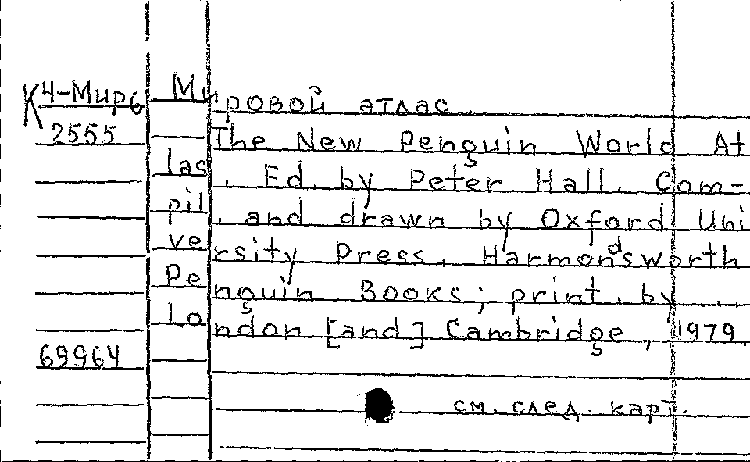 К4-Мир6 Мировой атлас
2555 The New Penguin World At
las. Ed. by Peter Hall. Com-
pil. and drawn by Oxford Uni
versity Press. Harmondsworth
Penguin Books; print. by ..
London [and] Cambridge, 1979.
69964
см. след. карт.